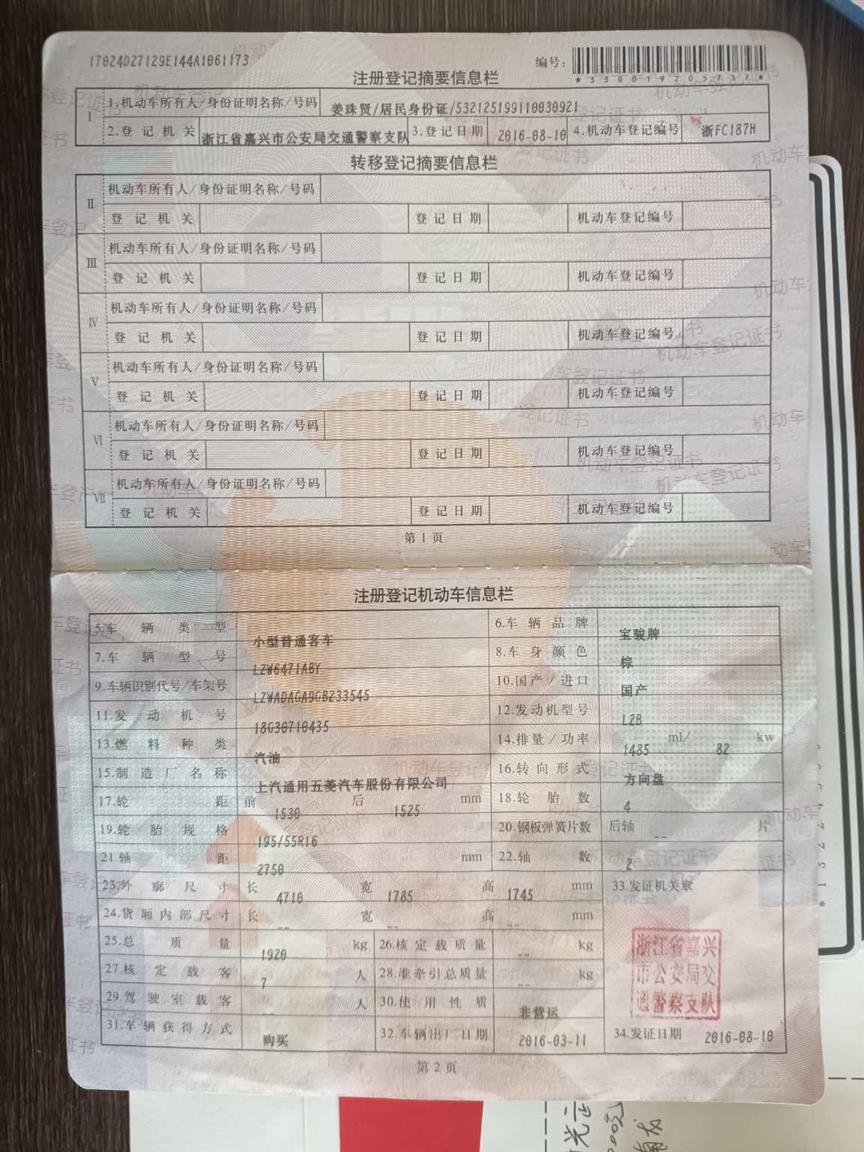 17024D27129E144A1061173
编号:
注册登记摘要信息栏
*330019205737*
Ⅰ 1.机动车所有人/身份证明名称/号码 姜珠贤/居民身份证/532125199110030921
2.登记机关 浙江省嘉兴市公安局交通警察支队 3.登记日期 2016-08-10 4.机动车登记编号 浙FC187H
转移登记摘要信息栏
Ⅱ 机动车所有人/身份证明名称/号码
登记机关 登记日期 机动车登记编号
Ⅲ 机动车所有人/身份证明名称/号码
登记机关 登记日期 机动车登记编号
Ⅳ 机动车所有人/身份证明名称/号码
登记机关 登记日期 机动车登记编号
Ⅴ 机动车所有人/身份证明名称/号码
登记机关 登记日期 机动车登记编号
Ⅵ 机动车所有人/身份证明名称/号码
登记机关 登记日期 机动车登记编号
Ⅶ 机动车所有人/身份证明名称/号码
登记机关 登记日期 机动车登记编号
第1页
注册登记机动车信息栏
5.车辆类型 小型普通客车 6.车辆品牌 宝骏牌
7.车辆型号 LZW6471ABY 8.车身颜色 棕
9.车辆识别代号/车架号 LZWADAGA9GB233545 10.国产/进口 国产
11.发动机号 18G30710435 12.发动机型号 L2B
13.燃料种类 汽油 14.排量/功率 1485 ml/ 82 kw
15.制造厂名称 上汽通用五菱汽车股份有限公司 16.转向形式 方向盘
17.轮距 前 1530 后 1525 mm 18.轮胎数 4
19.轮胎规格 195/55R16 20.钢板弹簧片数 后轴 -- 片
21.轴距 2750 mm 22.轴数 2
23.外廓尺寸 长 4710 宽 1785 高 1745 mm 33.发证机关章
24.货厢内部尺寸 长 -- 宽 -- 高 -- mm
25.总质量 1920 kg 26.核定载质量 -- kg
27.核定载客 7 人 28.准牵引总质量 -- kg
29.驾驶室载客 -- 人 30.使用性质 非营运
31.车辆获得方式 购买 32.车辆出厂日期 2016-03-11 34.发证日期 2016-08-10
浙江省嘉兴
市公安局交
通警察支队
第2页